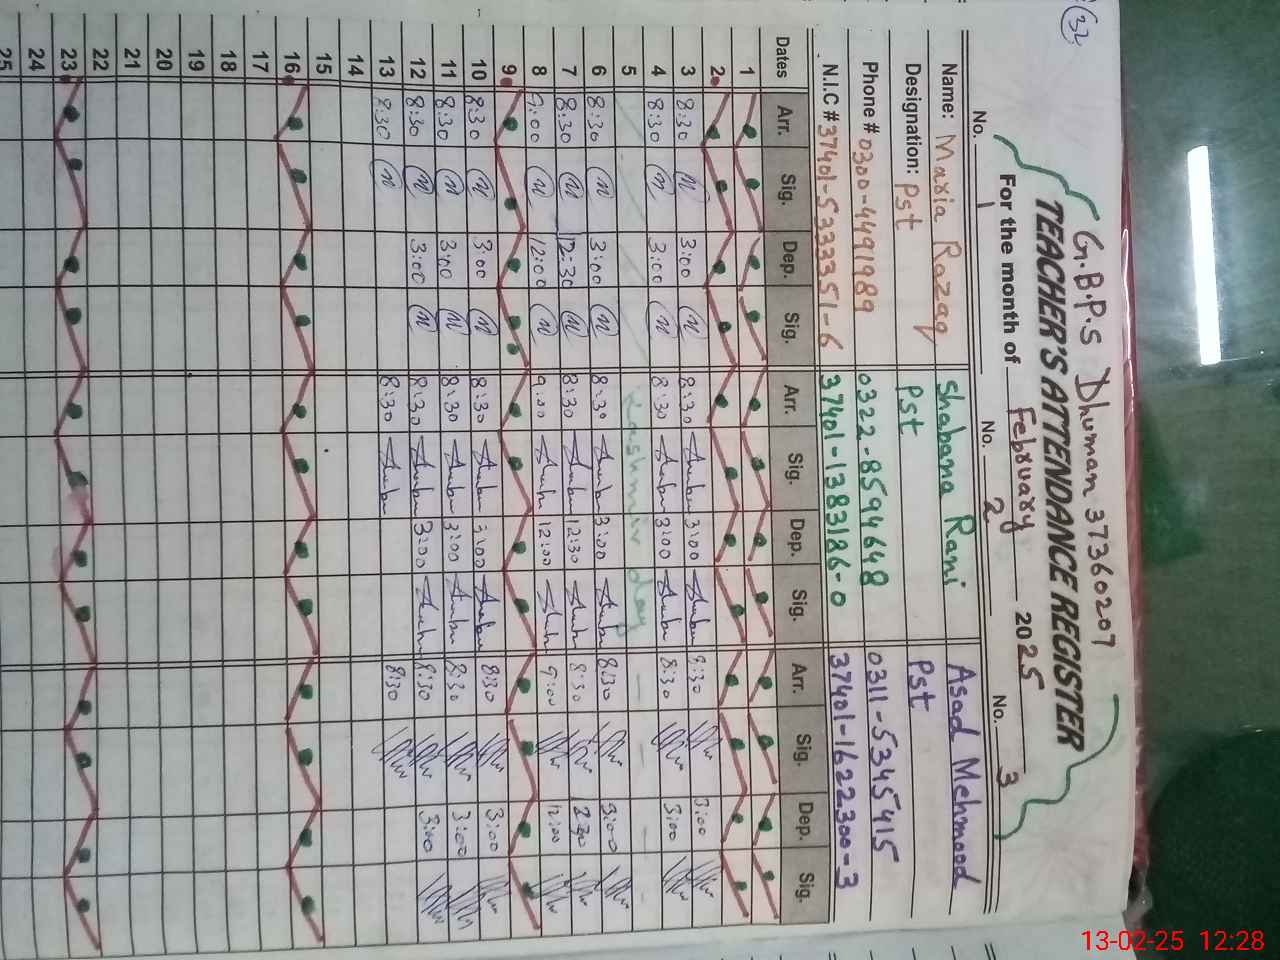 32
G.B.P.S Dhuman 37360207
TEACHER'S ATTENDANCE REGISTER
For the month of February 2025
No. 1 No. 2 No. 3
Name: Maria Razaq Shabana Rani Asad Mehmood
Designation: Pst Pst Pst
Phone # 0300-4491989 0322-8594648 0311-5345415
N.I.C # 37401-5333351-6 37401-1383186-0 37401-1622300-3
Dates Arr. Sig. Dep. Sig. Arr. Sig. Dep. Sig. Arr. Sig. Dep. Sig.
1
2
3 8:30 3:00 8:30 3:00 8:30 3:00
4 8:30 3:00 8:30 3:00 8:30 3:00
5 Kashmir day
6 8:30 3:00 8:30 3:00 8:30 3:00
7 8:30 12:30 8:30 12:30 8:30
8 9:00 12:00 9:00 12:00 9:00 12:00
9
10 8:30 3:00 8:30 3:00 8:30 3:00
11 8:30 3:00 8:30 3:00 8:30 3:00
12 8:30 3:00 8:30 3:00 8:30 3:00
13 8:30 8:30 8:30
14
15
16
17
18
19
20
21
22
23
24
25
13-02-25 12:28